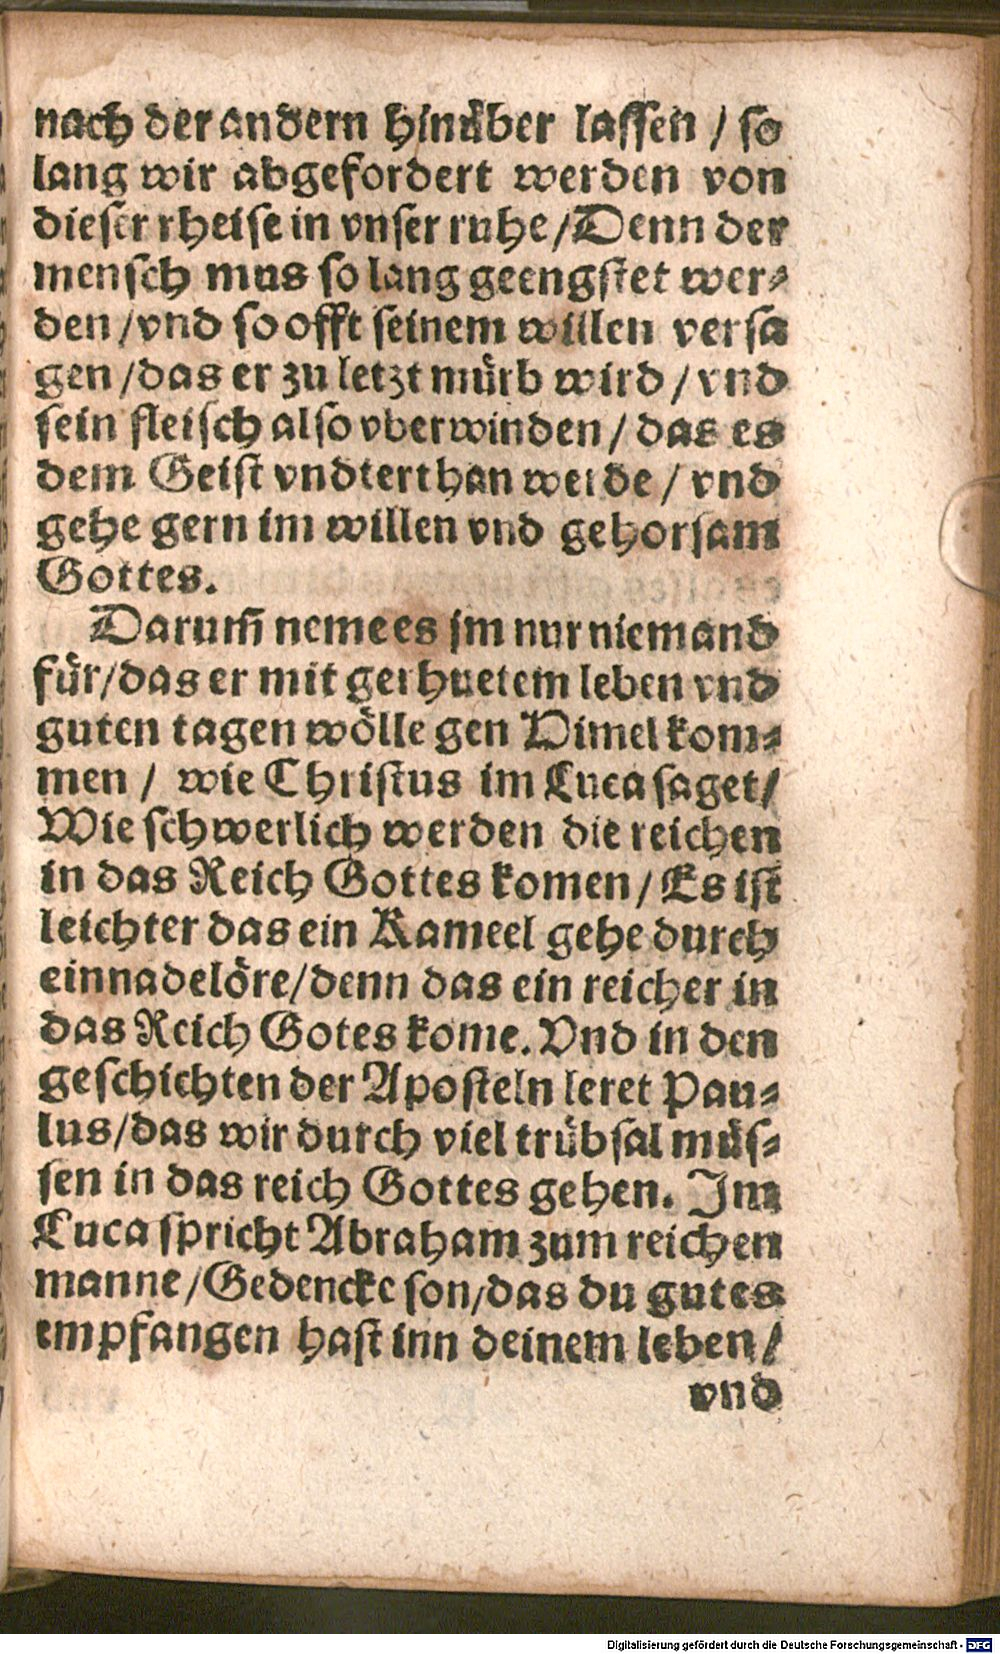 nach der andern hinüber lassen / so
lang wir abgefordert werden von
dieser rheise in vnser ruhe / Denn der
mensch mus so lang geengstet wer-
den / vnd so offt seinem willen versa
gen / das er zu letzt mürb wird / vnd
sein fleisch also vberwinden / das es
dem Geist vndterthan werde / vnd
gehe gern im willen vnd gehorsam
Gottes.
Darum̃ neme es jm nur niemand
für / das er mit gerhuetem leben vnd
guten tagen wölle gen Himel kom-
men / wie Christus im Luca saget /
Wie schwerlich werden die reichen
in das Reich Gottes komen / Es ist
leichter das ein Kameel gehe durch
ein nadelöre / denn das ein reicher in
das Reich Gotes kome. Vnd in den
geschichten der Aposteln leret Pau-
lus / das wir durch viel trübsal müs-
sen in das reich Gottes gehen. Im
Luca spricht Abraham zum reichen
manne / Gedencke son / das du gutes
empfangen hast inn deinem leben /
vnd
Digitalisierung gefördert durch die Deutsche Forschungsgemeinschaft - DFG